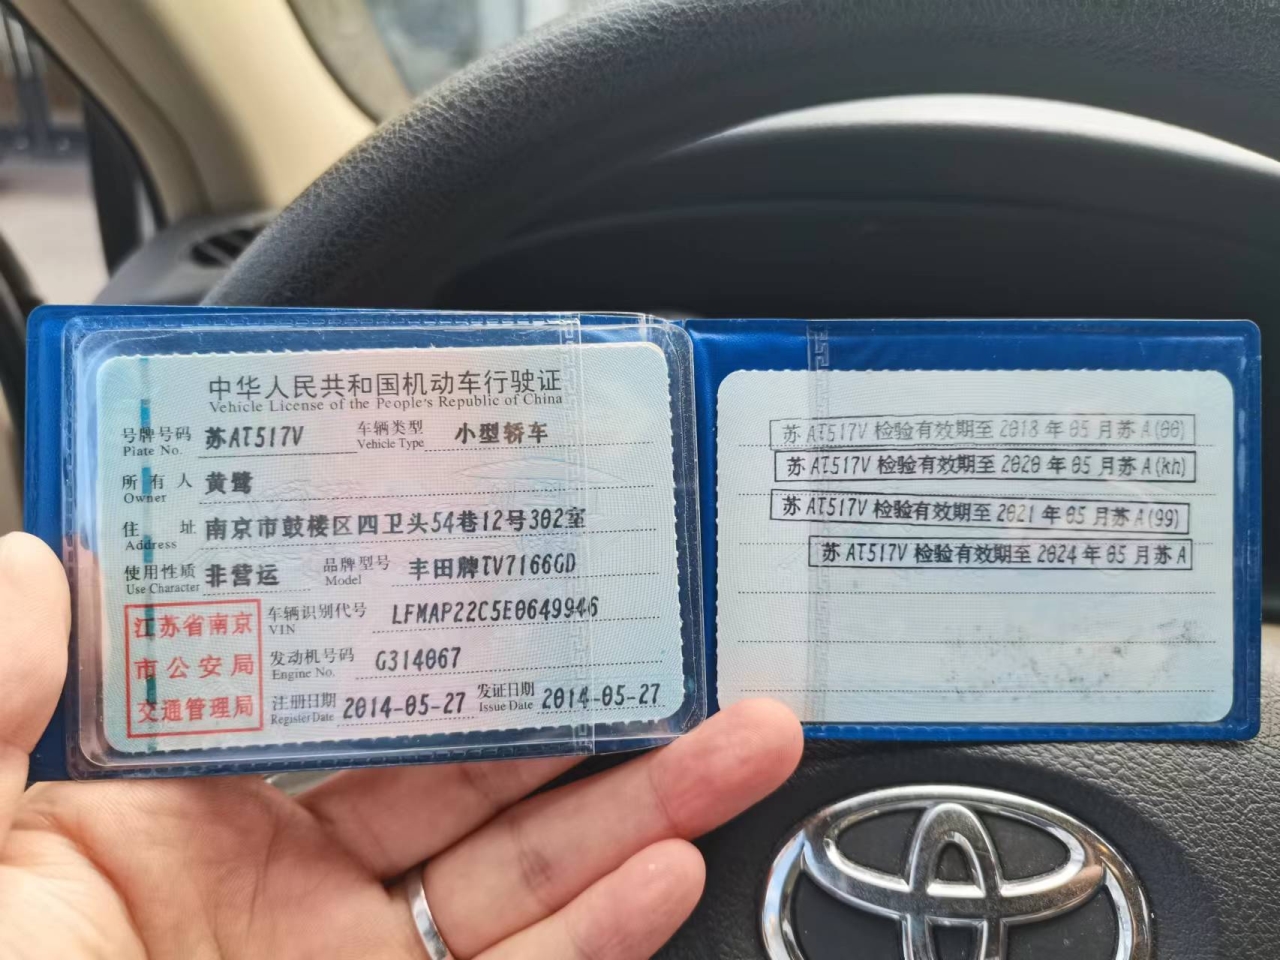 中华人民共和国机动车行驶证
Vehicle License of the People's Republic of China
号牌号码 苏AT517V 车辆类型 小型轿车
Plate No. Vehicle Type
所有人 黄鹭
Owner
住址 南京市鼓楼区四卫头54巷12号302室
Address
使用性质 非营运 品牌型号 丰田牌TV7166GD
Use Character Model
江苏省南京
市公安局
交通管理局
车辆识别代号 LFMAP22C5E0649946
VIN
发动机号码 G314067
Engine No.
注册日期 2014-05-27 发证日期 2014-05-27
Register Date Issue Date
苏AT517V检验有效期至2018年05月苏A(00)
苏AT517V检验有效期至2020年05月苏A(kh)
苏AT517V检验有效期至2021年05月苏A(99)
苏AT517V检验有效期至2024年05月苏A